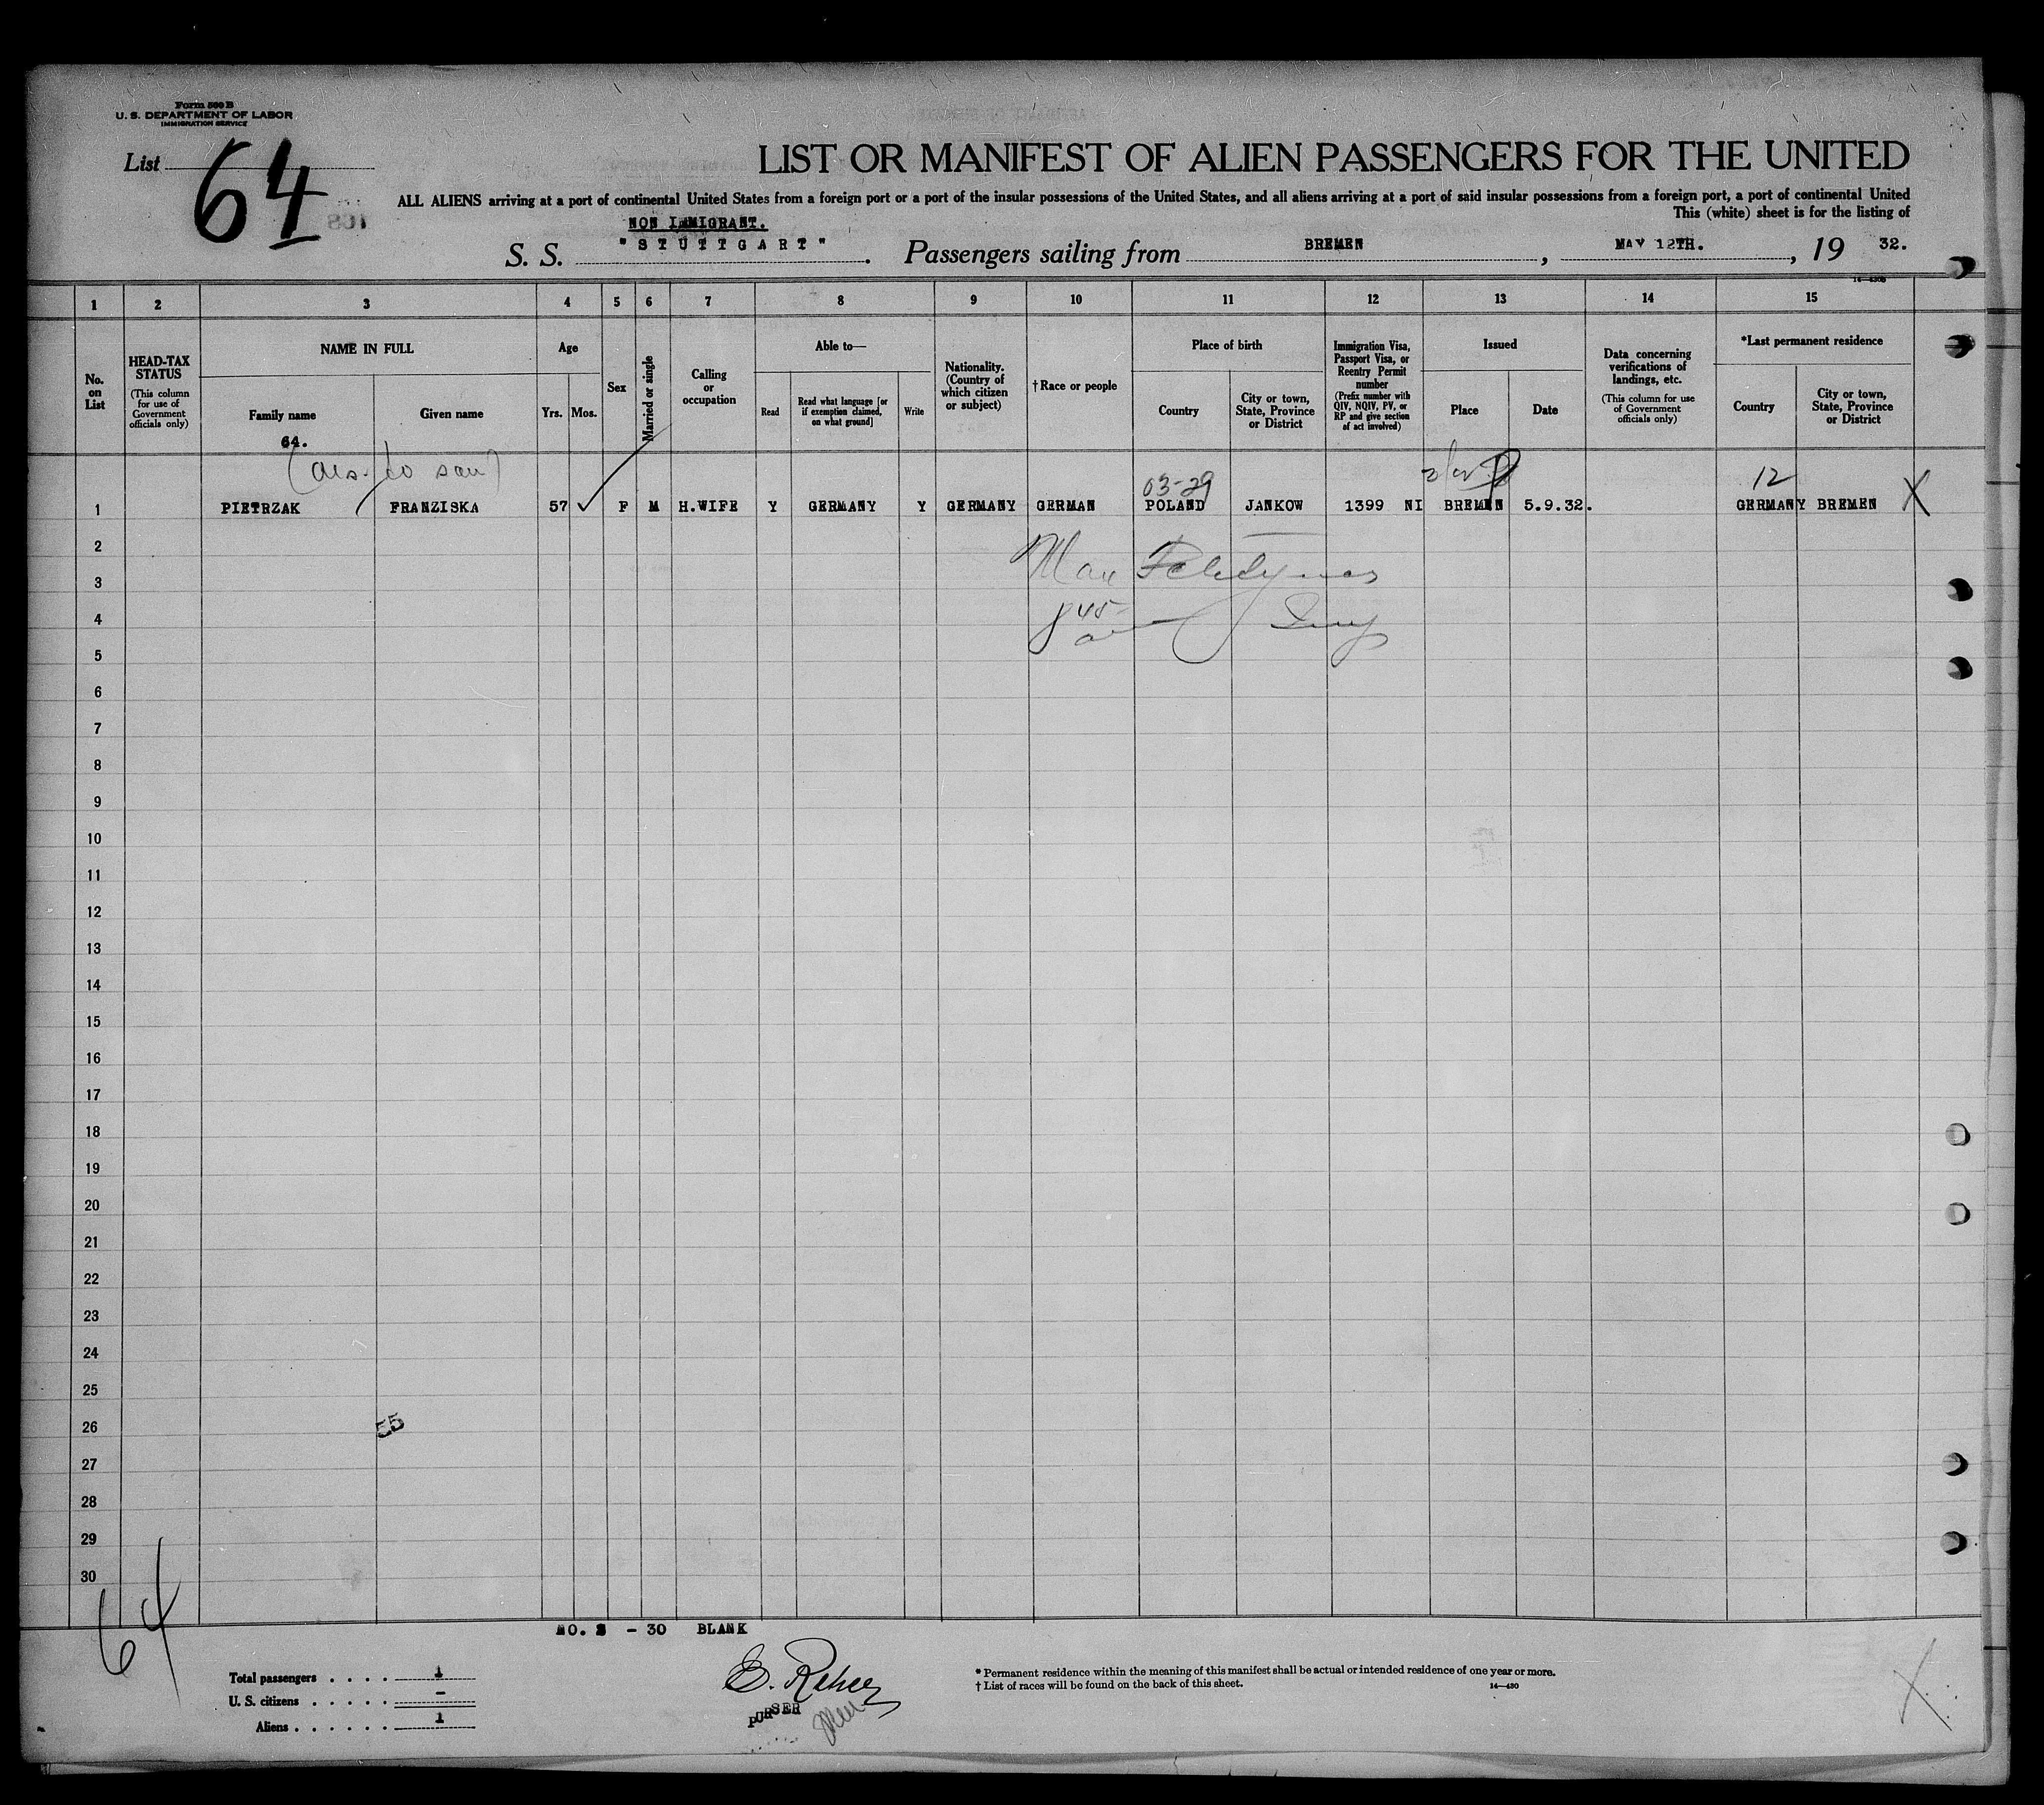 Form 500 B
U. S. DEPARTMENT OF LABOR
IMMIGRATION SERVICE
List 64
LIST OR MANIFEST OF ALIEN PASSENGERS FOR THE UNITED
ALL ALIENS arriving at a port of continental United States from a foreign port or a port of the insular possessions of the United States, and all aliens arriving at a port of said insular possessions from a foreign port, a port of continental United
This (white) sheet is for the listing of
NON IMMIGRANT.
S. S. "STUTTGART". Passengers sailing from BREMEN, MAY 12TH., 19 32.
1 2 3 4 5 6 7 8 9 10 11 12 13 14 15
No. on List
HEAD-TAX STATUS
(This column for use of Government officials only)
NAME IN FULL
Family name
Given name
64.
Age
Yrs. Mos.
Sex
Married or single
Calling or occupation
Able to—
Read
Read what language [or if exemption claimed, on what ground]
Write
Nationality. (Country of which citizen or subject)
†Race or people
Place of birth
Country
City or town, State, Province or District
Immigration Visa, Passport Visa, or Reentry Permit number
(Prefix number with QIV, NQIV, PV, or RP and give section of act involved)
Issued
Place
Date
Data concerning verifications of landings, etc.
(This column for use of Government officials only)
*Last permanent residence
Country
City or town, State, Province or District
03-29
12
1 PIETRZAK FRANZISKA 57 ✓ F M H.WIFE Y GERMANY Y GERMANY GERMAN POLAND JANKOW 1399 NI BREMEN 5.9.32. GERMANY BREMEN X
2
3
4
5
6
7
8
9
10
11
12
13
14
15
16
17
18
19
20
21
22
23
24
25
26 55
27
28
29
30
64
NO. 2 - 30 BLANK
Total passengers . . . . 1
U. S. citizens . . . . . -
Aliens . . . . . . 1
PURSER
* Permanent residence within the meaning of this manifest shall be actual or intended residence of one year or more.
† List of races will be found on the back of this sheet.
14—430
X